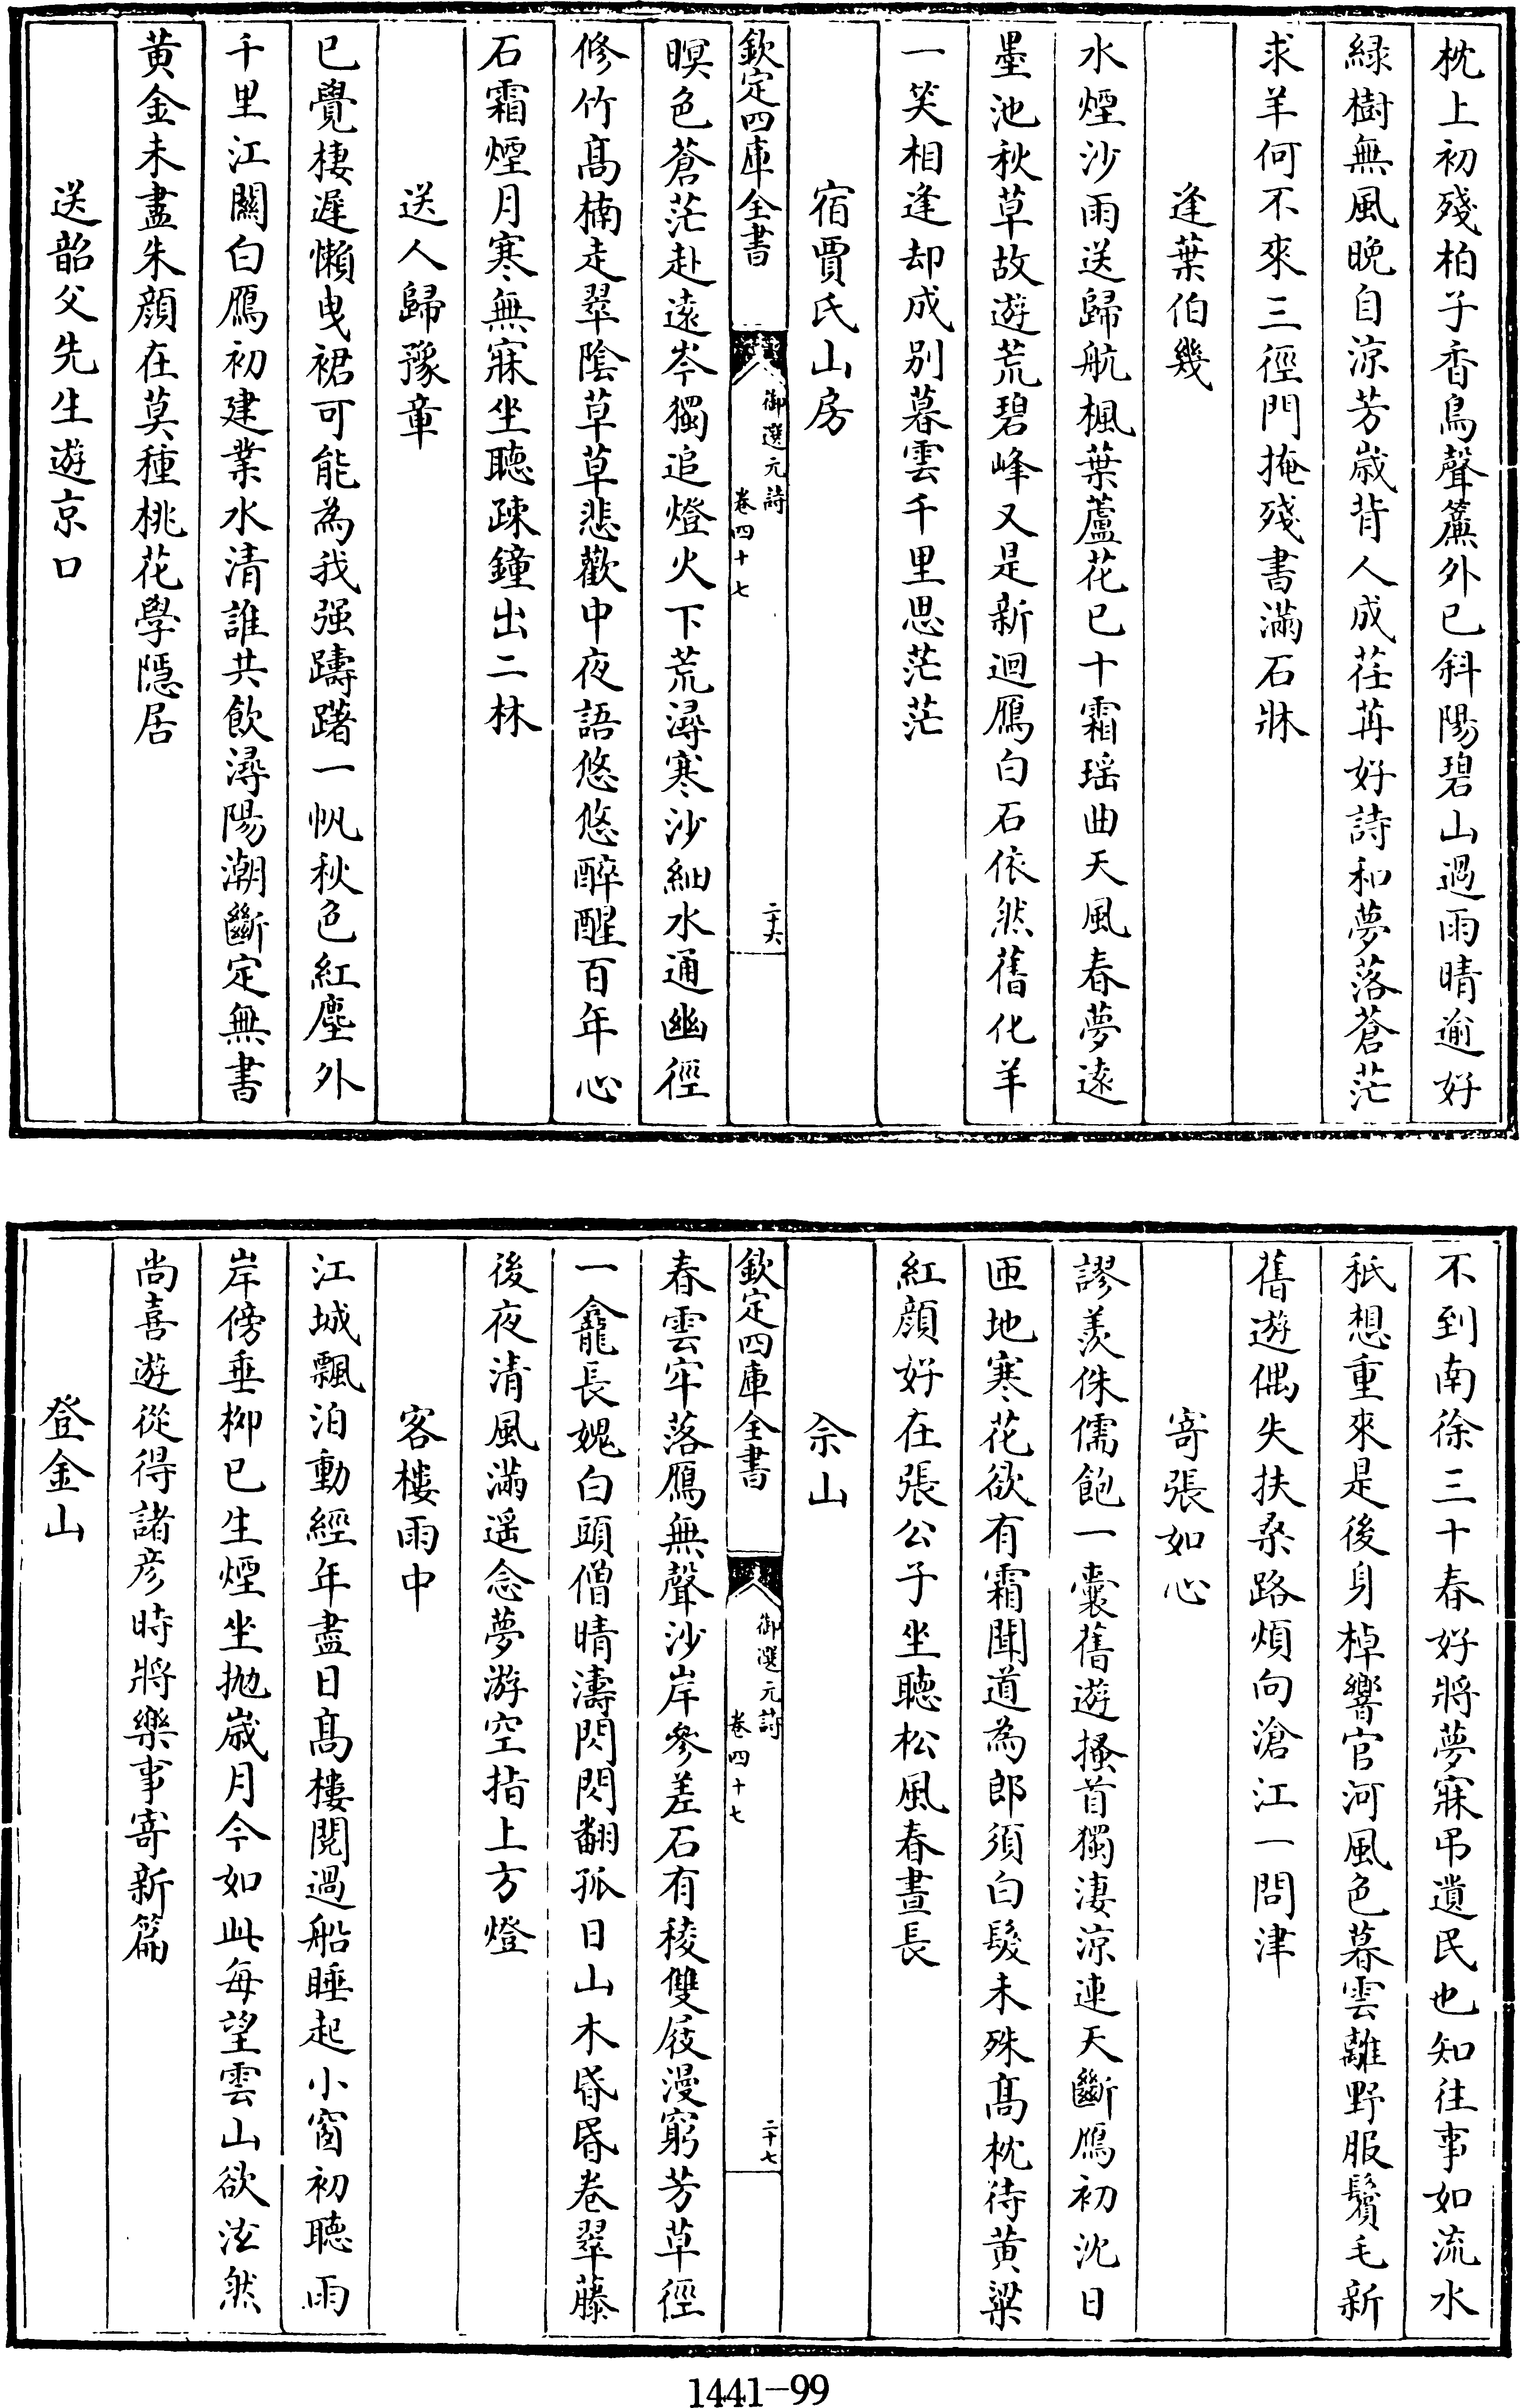 枕上初殘柏子香鳥聲簾外已斜陽碧山過雨晴逾好
緑樹無風晩自涼芳歲背人成荏苒好詩和夢落蒼茫
求羊何不來三徑門掩殘書滿石牀
逢葉伯幾
水煙沙雨送歸航楓葉蘆花已十霜瑶曲天風春夢遠
墨池秋草故遊荒碧峰又是新迴鴈白石依然舊化羊
一笑相逢却成别暮雲千里思茫茫
宿賈氏山房
欽定四庫全書
御選元詩
卷四十七
二十六
暝色蒼茫赴遠岑獨追燈火下荒潯寒沙細水通幽徑
修竹髙楠走翠陰草草悲歡中夜語悠悠醉醒百年心
石霜煙月寒無寐坐聽疎鐘出二林
送人歸豫章
已覺棲遲懶曳裾可能為我强躊躇一帆秋色紅塵外
千里江闗白鴈初建業水清誰共飲潯陽潮斷定無書
黄金未盡朱顔在莫種桃花學隱居
送韶父先生遊京口
不到南徐三十春好將夢寐弔遺民也知往事如流水
秖想重來是後身棹響官河風色暮雲離野服鬢毛新
舊遊偶失扶桑路煩向滄江一問津
寄張如心
謬羨侏儒飽一囊舊遊搔首獨淒涼連天斷鴈初沈日
匝地寒花欲有霜聞道為郎須白髮未殊髙枕待黄粱
紅顔好在張公子坐聽松風春晝長
佘山
欽定四庫全書
御選元詩
卷四十七
二十七
春雲牢落鴈無聲沙岸參差石有稜雙屐漫窮芳草徑
一龕長媿白頭僧晴濤閃閃翻孤日山木昏昏卷翠藤
後夜清風滿遥念夢游空指上方燈
客樓雨中
江城飄泊動經年盡日髙樓閱過船睡起小窗初聽雨
岸傍垂柳已生煙坐抛歲月今如此每望雲山欲泫然
尚喜遊從得諸彦時將樂事寄新篇
登金山
1441-99